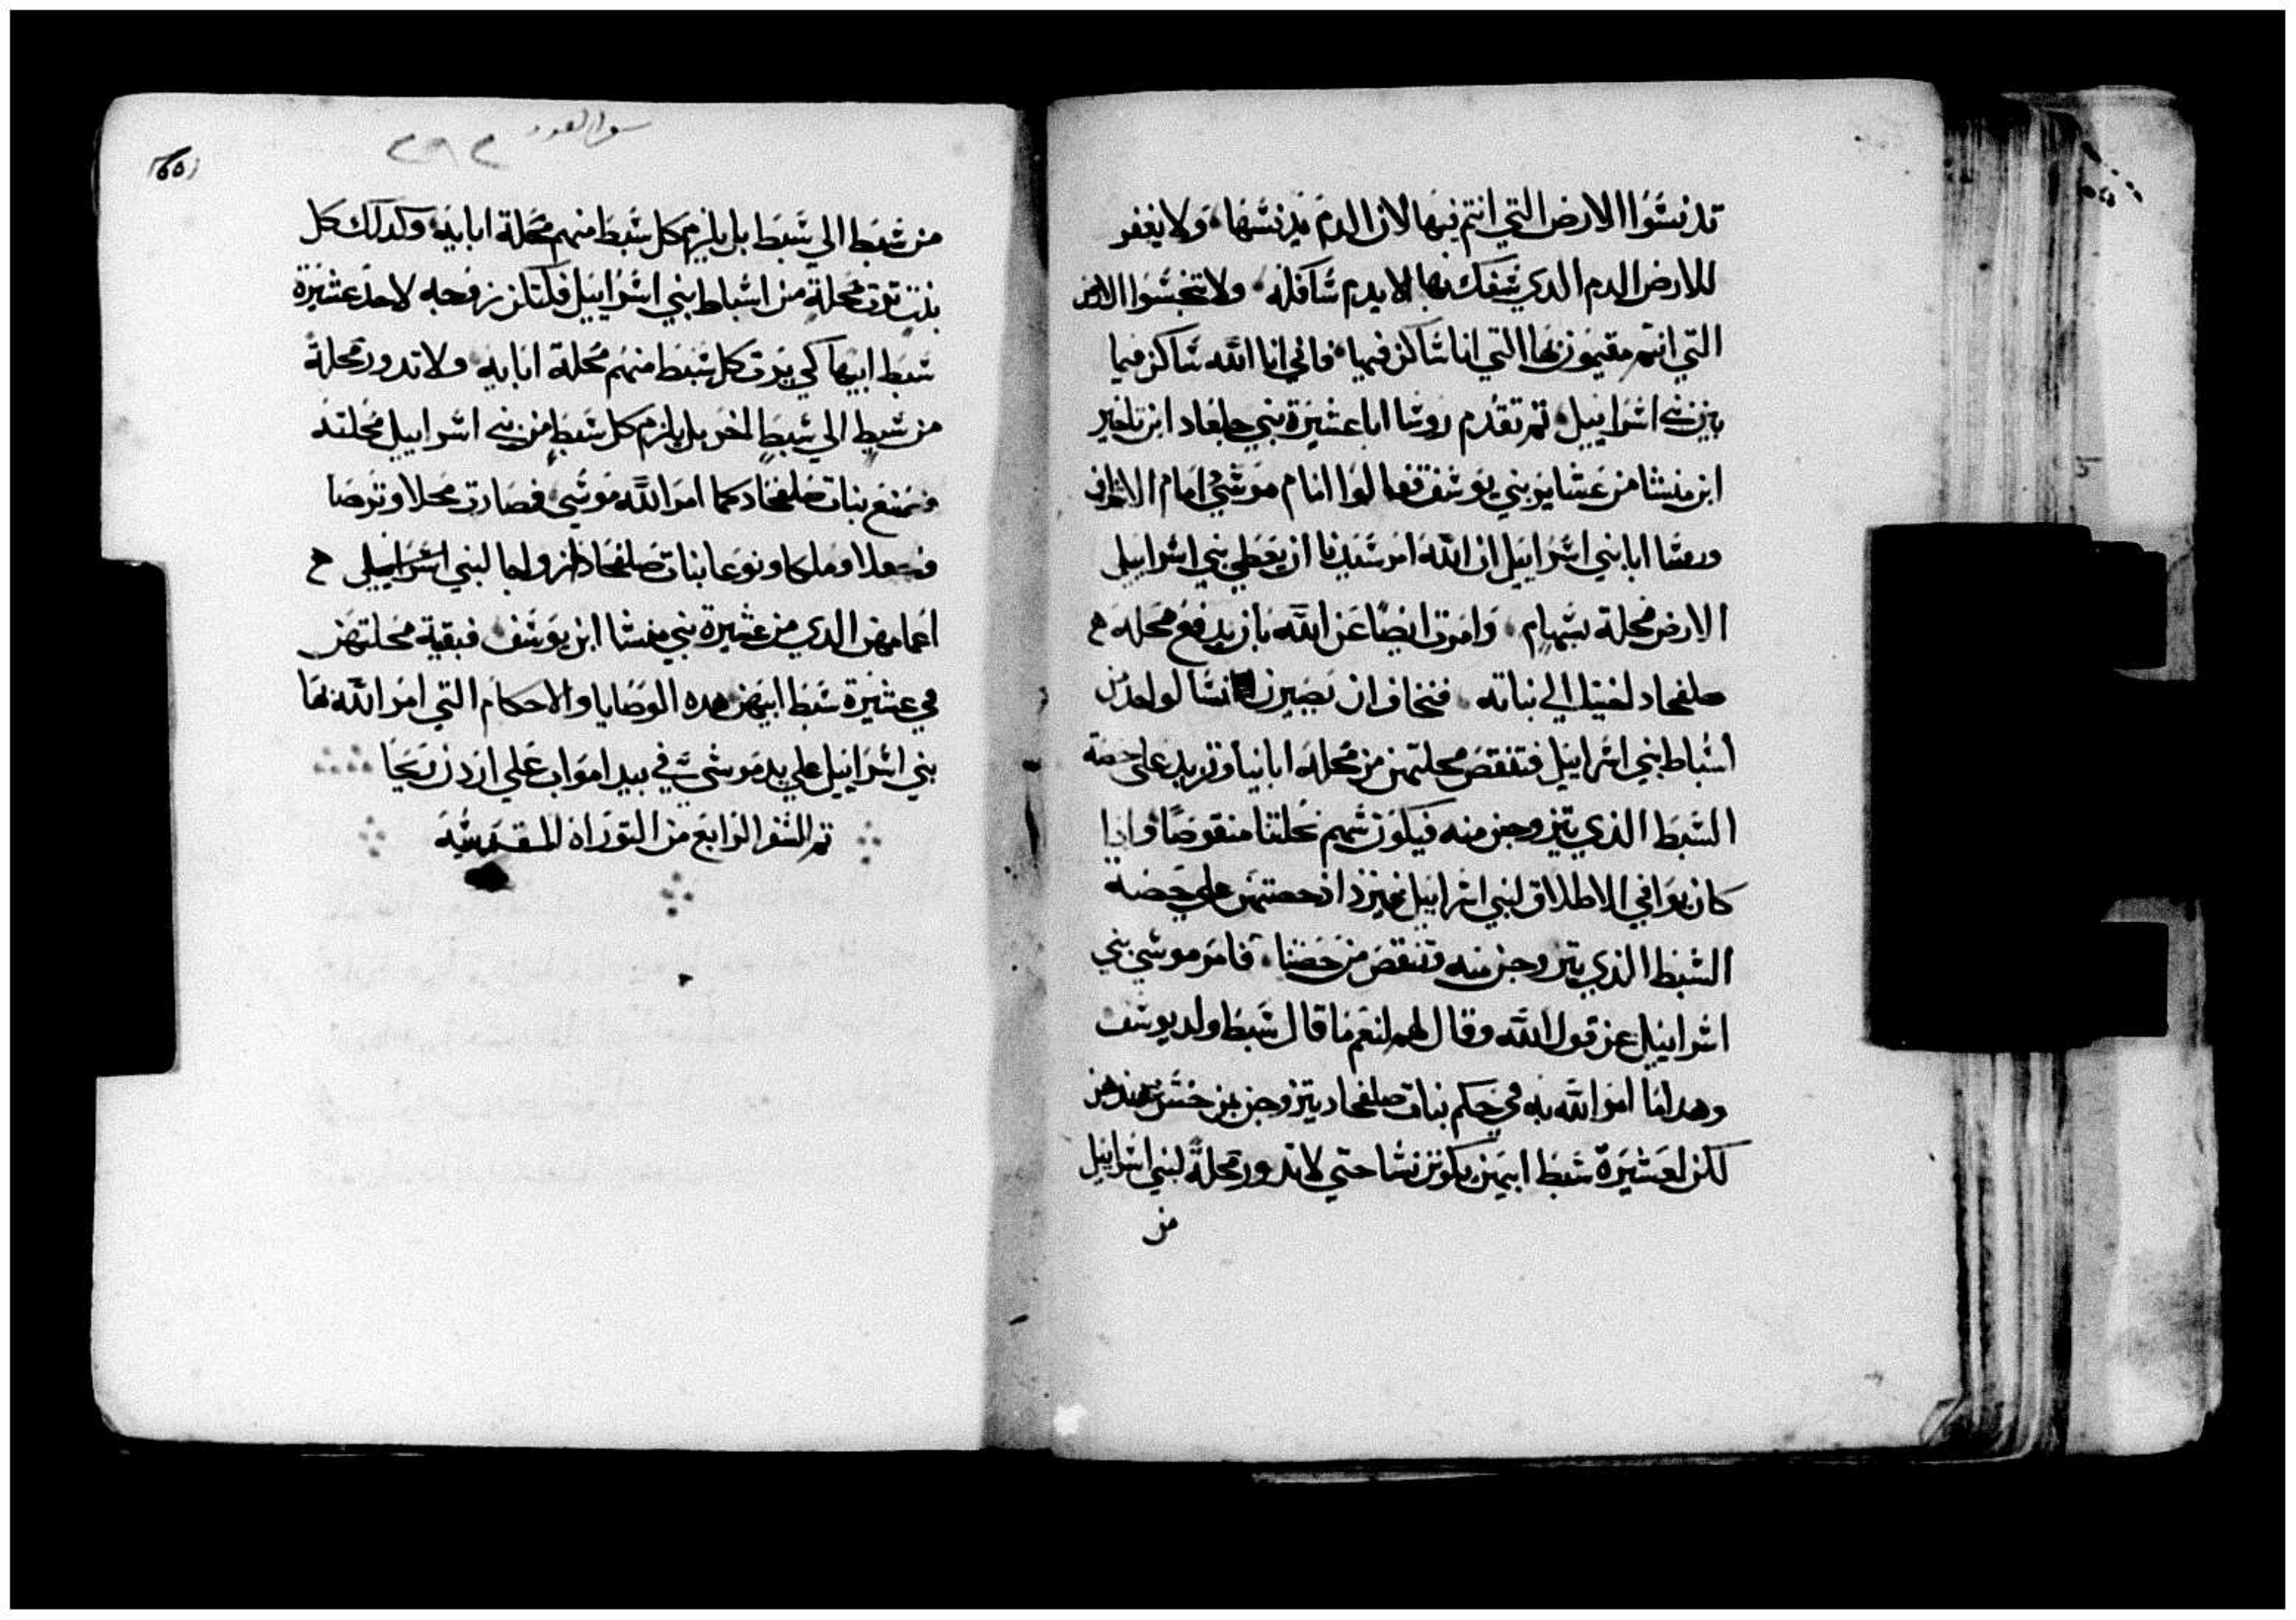 تدنسوا الارض التي انتم فيها لان الدم يدنسها ولا يغفر
للارض الدم الدي سفك بها الا بدم سافكه ولا تنجسوا الارض
التي انتم مقيمون بها التي انا ساكن فيها فاني انا الله ساكن فيما
بين بني اسراييل تم تقدم روسا ابا عشيرة بني جلعاد ابن ماخير
ابن منشا من عشاير بني يوسف فقالوا امام موسي امام الاشراف
وروسا ابا بني اسراييل ان الله امر سيدنا ان يعطي بني اسراييل
الارض محلة بسهام وامرت ايضا عن الله بان يدفع محله
صلفحاد الي بناته فنخاف ان يصيرن نسا لواحد من
اسباط بني اسراييل فتنقص محلتهن من محله ابايناو تزيد علي حصة
السبط الذي يتزوجن منه فيكون سهم نحلتنا منقوصا وادا
كان يوافي الاطلاق لبني اسراييل حصتهن علي حصه
السبط الذي يتزوجن منه وتنقص من حصتنا فامر موسي بني
اسراييل عن قول الله وقال لهم لنعم ما قال سبط ولد يوسف
وهدا ما امر الله به في حكم بنات صلفحاد يتزوجن بمن حسن عندهن
لكن لعشيرة سبط ابيهن يكونن نسا حتي لا تدور محلة لبني اسراييل
من
٢٩٢
من سبط الي سبط بل يلزم كل سبط منهم محلة ابايه وكدلك كل
بنت ترت محلة من اسباط بني اسراييل فلتكن زوجه لاحد عشيرة
سبط ابيها كي يرت كل سبط منهم محلة ابايه ولا تدور محلة
من سبط الي سبط اخر بل يلزم كل سبط من بني اسراييل محلته
بنات صلفحاد كما امر الله موسي فصارت محلا وترصا
وحجلا وملكا ونوعا بنات صلفحاد ازواجا لبني
اعمامهن الدي من عشيرة بني منشا ابن يوسف فبقية محلتهن
في عشيرة سبط ابيهن هده الوصايا والاحكام التي امر الله بها
بني اسراييل علي يد موسي في بيدا مواب علي اردن ريحا
تم السفر الرابع من التوراة المقدسة